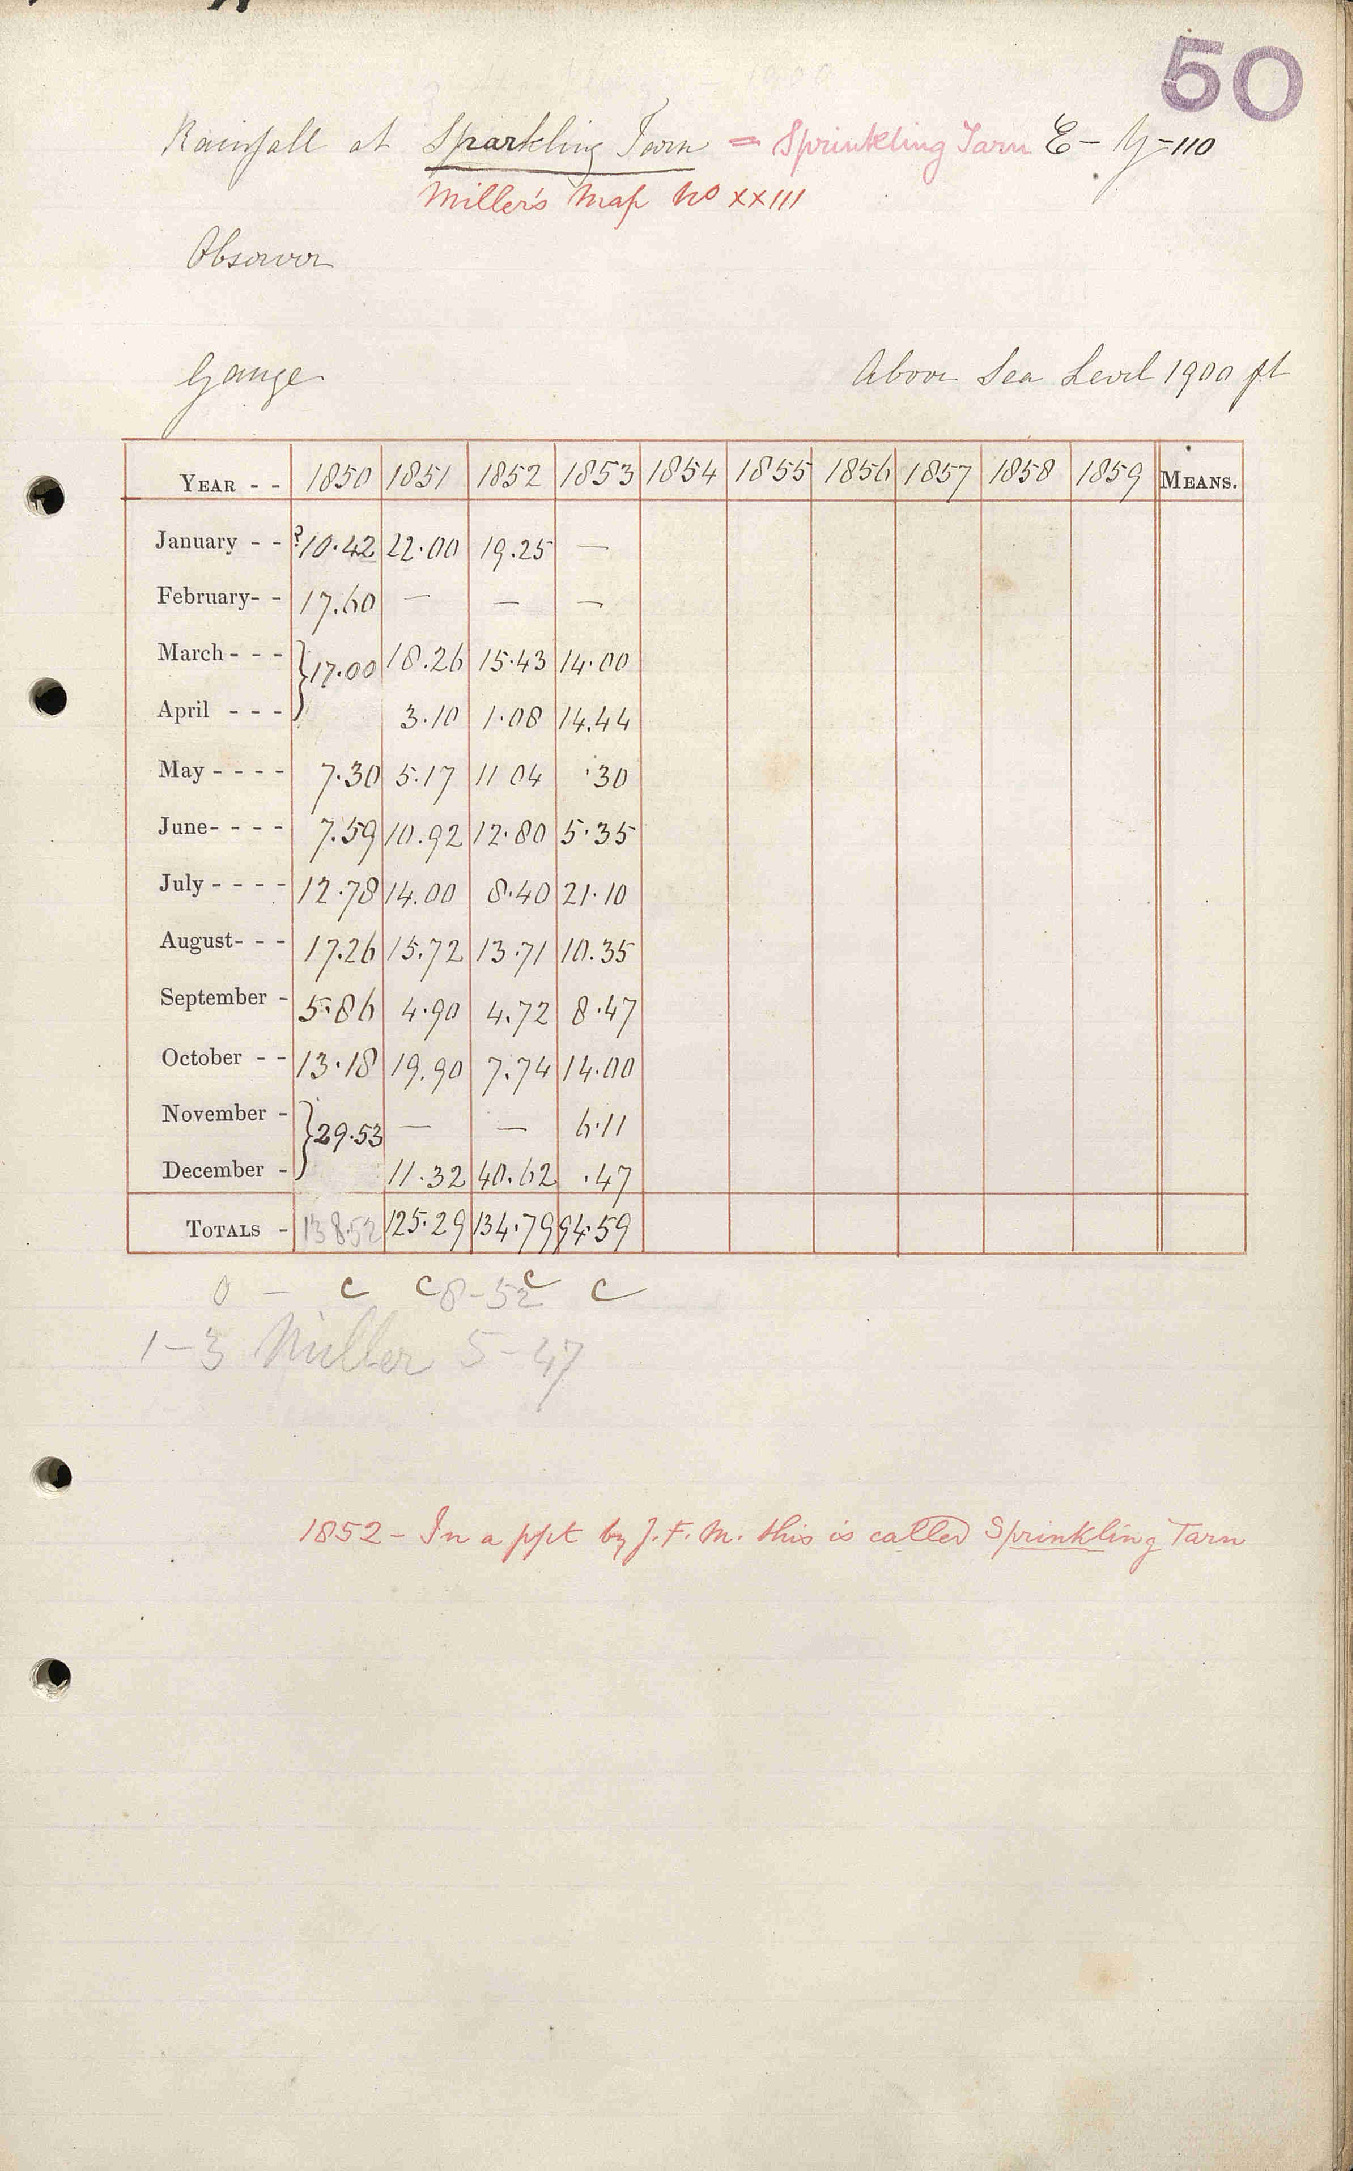 50
Rainfall at Sparkling Tarn = Sprinkling Tarn E - G = 110
Miller's Map No XXIII
Observer
Gauge Above Sea Level 1900 ft
YEAR - - 1850 1851 1852 1853 1854 1855 1856 1857 1858 1859 MEANS.
January - - ?10.42 22.00 19.25 —
February- - 17.60 — — —
March - - - } 17.00 18.26 15.43 14.00
April - - - 3.10 1.08 14.44
May - - - - 7.30 5.17 11 04 .30
June- - - - 7.59 10.92 12.80 5.35
July - - - - 12.78 14.00 8.40 21.10
August- - - 17.26 15.72 13.71 10.35
September - 5.86 4.90 4.72 8.47
October - - 13.18 19.90 7.74 14.00
November - } 29.53 — — 6.11
December - 11.32 40.62 .47
TOTALS - 138.52 125.29 134.79 94.59
0 — c c 8-52 c c
1-3 Miller 5-47
1852 - In a ppt by J.F.M. this is called Sprinkling Tarn